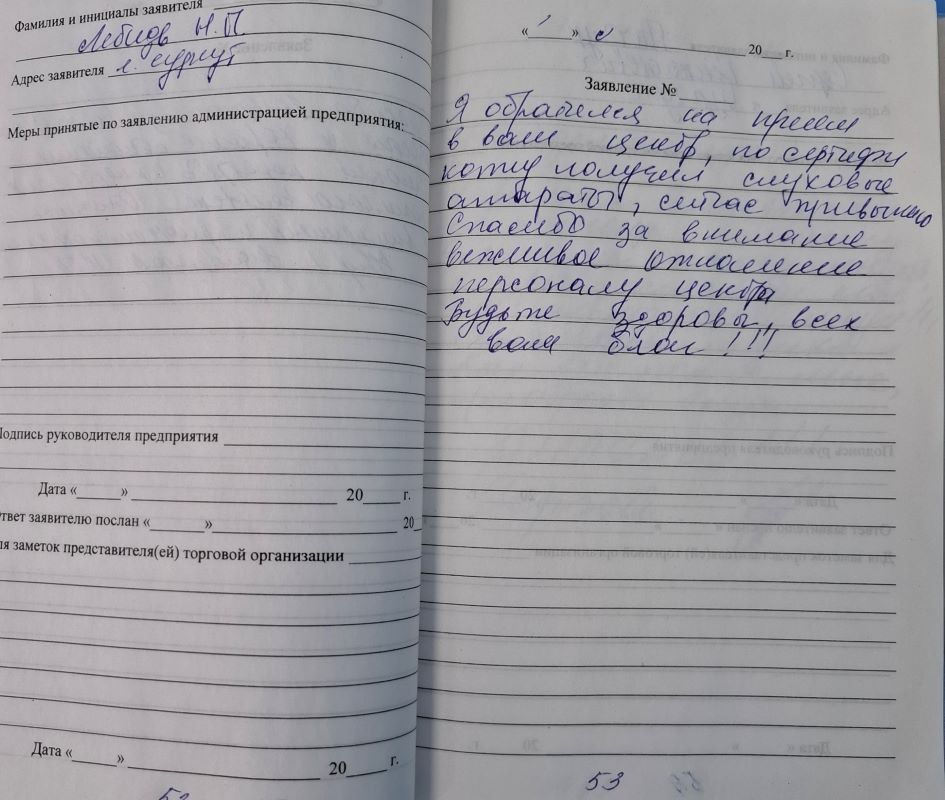 Фамилия и инициалы заявителя
Н.П
Адрес заявителя г. Сургут
Меры принятые по заявлению администрацией предприятия:
Подпись руководителя предприятия
Дата «____» ____ 20___ г.
Ответ заявителю послан «____» ____ 20
ля заметок представителя(ей) торговой организации
Дата «____» ____ 20___ г.
«____» ____ 20___ г.
Заявление №
Я обратился на прием
в ваш центр, по сертифи
кату получил слуховые
аппараты, сейчас привыкаю
Спасибо за внимание
вежливое отношение
персоналу центра
Будьте здоровы, всех
вам благ!!!
53